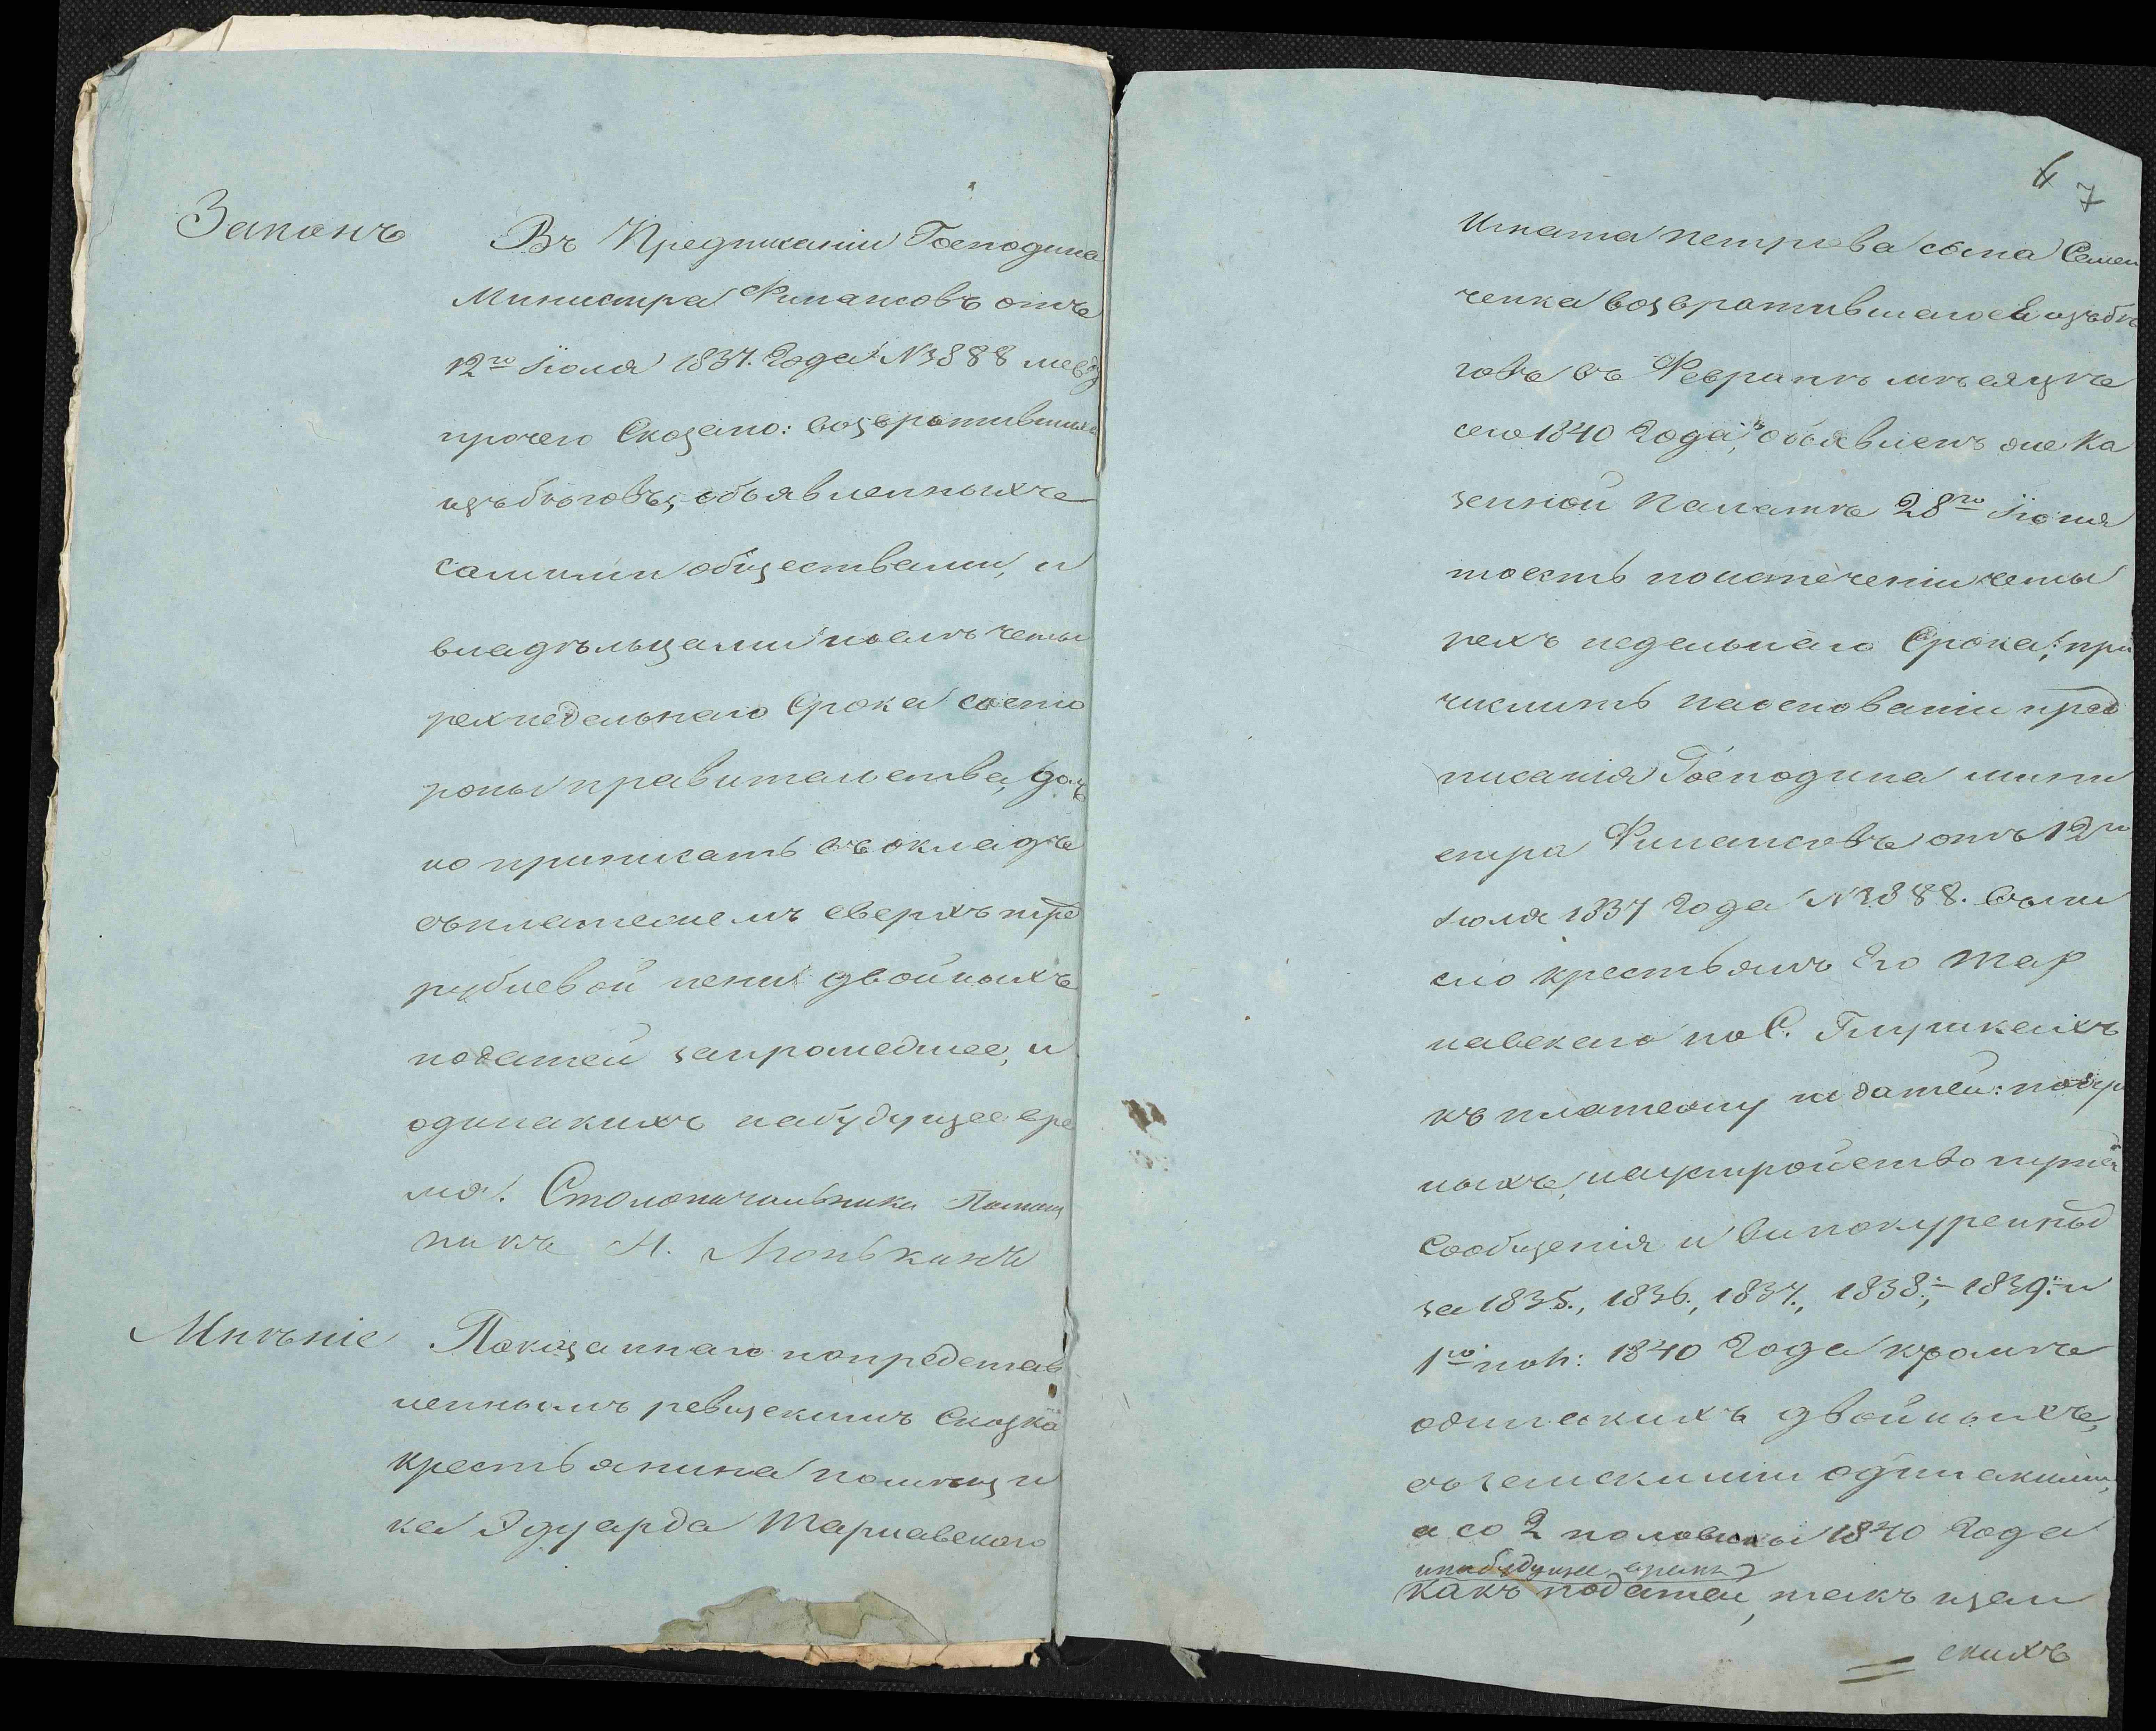 Законъ
Въ Предписаніи Господина
Министра Финансовъ отъ
12го Іюля 1837. Года №3888 между
прочего Сказано: возвратившихся
изъ бѣговъ, объявленныхъ
самыми обществами, и
владѣльцами послѣ четы
рехнедельнаго Срока состо
роны правительства, дол
но приписать въ окладъ
съ платежемъ сверхъ тре
рублевой пени двойныхъ
податей запрошедшее, и
одинакихъ на будущее вре
мя. Столоначальника Помощ
никъ
Мнѣніе
Показаннаго по представ
леннымъ ревизскимъ Сказка
крестьянина помѣщи
ка Эдуарда Тарнавского
6 7
Игната петрова сына Семен
ченка возвратившагося изъ бѣ
говъ въ Февралѣ мѣсяцѣ
сего 1840 Года, объявленъ же Ка
зенной Палатѣ 28го Іюня
тоесть по истеченіи четы
рехъ недельнаго Срока, при
числить на основаніи пред
писанія Господина мини
стра Финансовъ отъ 12го
Іюля 1837 Года №3888. въ чи
сло крестьянъ Его Тар
навскаго по С. Глушкахъ
къ платежу податей: подуш
ныхъ, на устройство
Сообщенія и винокуренныхъ
за 1835., 1836., 1837., 1838., 1839. и
1ю пол: 1840 Года кромѣ
одинакихъ двойныхъ,
съ земскими одинакими,
а со 2 половины 1840 Года
и на будущее время
какъ податей, такъ и зем
скихъ